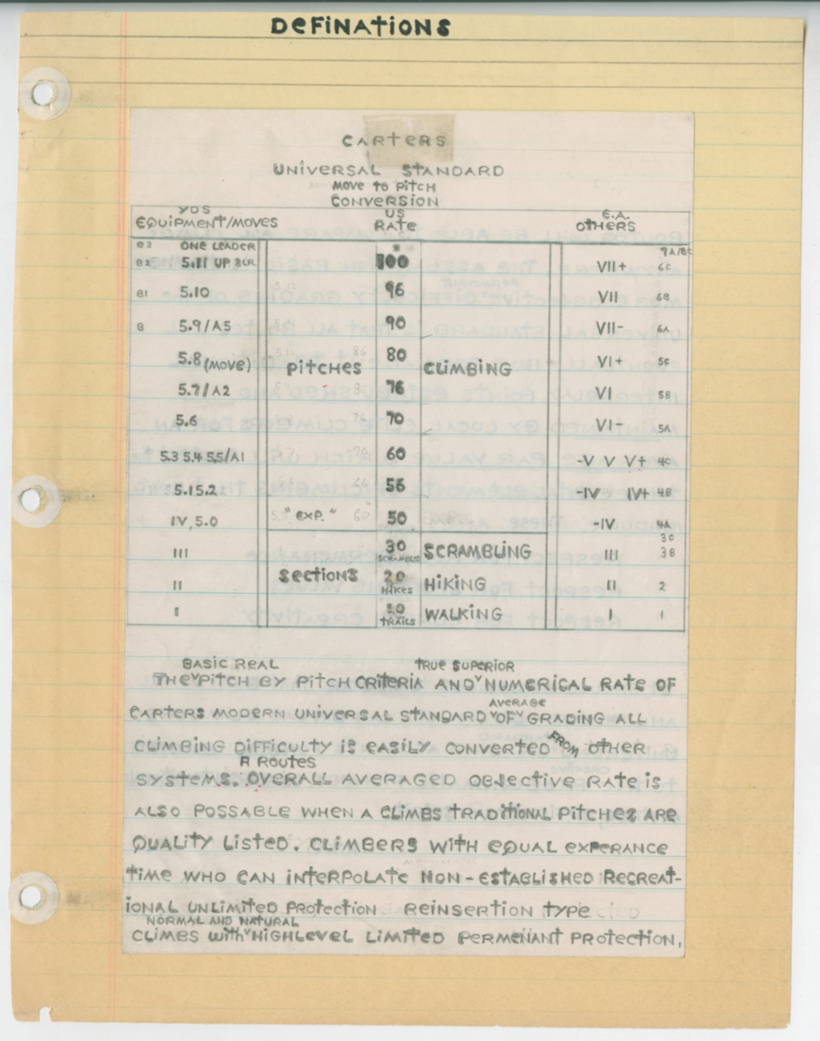 DEFINATIONS
CARTERS
UNIVERSAL STANDARD
MOVE TO PITCH
CONVERSION
YDS US E.A.
EQUIPMENT/MOVES RATE OTHERS
B3 ONE LEADER 7A/BC
B2 5.11 UP 100 VII+ 6C
B1 5.10 96 VII 6B
B 5.9/A5 90 VII- 6A
5.8 (MOVE) PITCHES 80 CLIMBING VI+ 5C
5.7/A2 76 VI 5B
5.6 70 VI- 5A
5.3 5.4 5.5/A1 60 -V V V+ 4C
5.1 5.2 56 -IV IV+ 4B
IV, 5.0 "EXP." 50 -IV 4A
3C
III 30 SCRAMBLING III 3B
SCRAMBLE
II SECTIONS 20 HIKING II 2
HIKES
I 10 WALKING I 1
TRAILS
BASIC REAL TRUE SUPERIOR
THE PITCH BY PITCH CRITERIA AND NUMERICAL RATE OF
AVERAGE
CARTERS MODERN UNIVERSAL STANDARD OF GRADING ALL
CLIMBING DIFFICULTY IS EASILY CONVERTED FROM OTHER
A ROUTES
SYSTEMS. OVERALL AVERAGED OBJECTIVE RATE IS
ALSO POSSABLE WHEN A CLIMBS TRADITIONAL PITCHES ARE
QUALITY LISTED. CLIMBERS WITH EQUAL EXPERANCE
TIME WHO CAN INTERPOLATE NON-ESTABLISHED RECREAT-
IONAL UNLIMITED PROTECTION REINSERTION TYPE
NORMAL AND NATURAL
CLIMBS WITH HIGHLEVEL LIMITED PERMENANT PROTECTION,